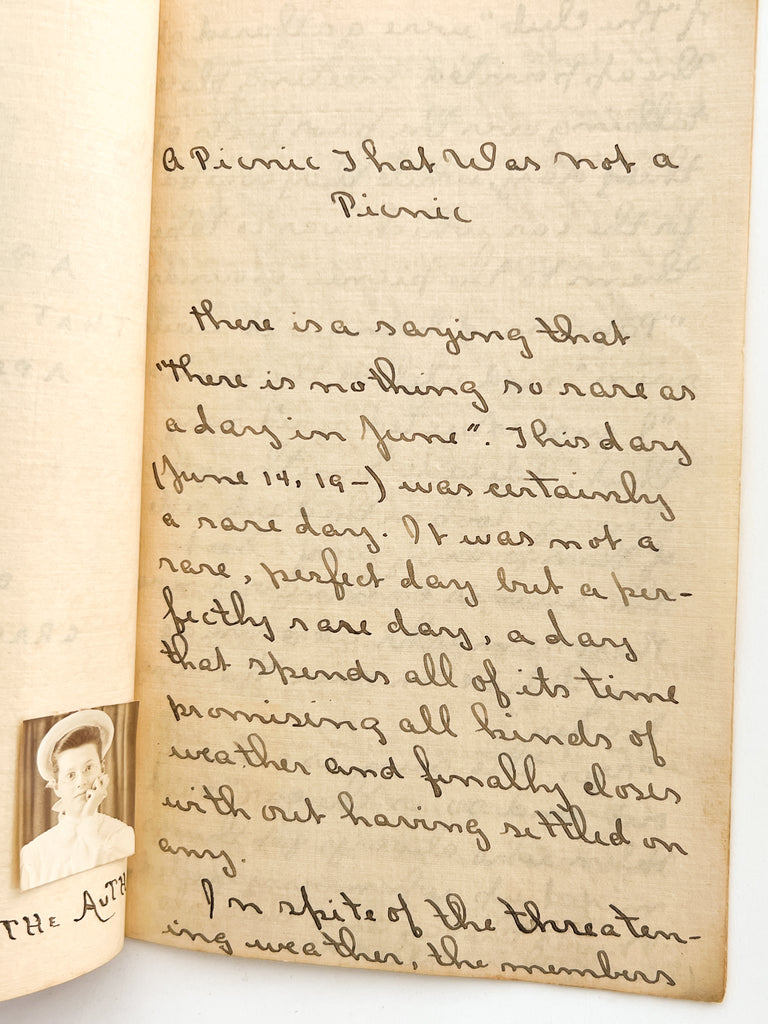 THE AUTH
A Picnic That Was not a
Picnic
there is a saying that
"there is nothing so rare as
a day in June". This day
(June 14, 19-) was certainly
a rare day. It was not a
rare, perfect day but a per-
fectly rare day, a day
that spends all of its time
promising all kinds of
weather and finally closes
with out having settled on
any.
In spite of the threaten-
ing weather, the members